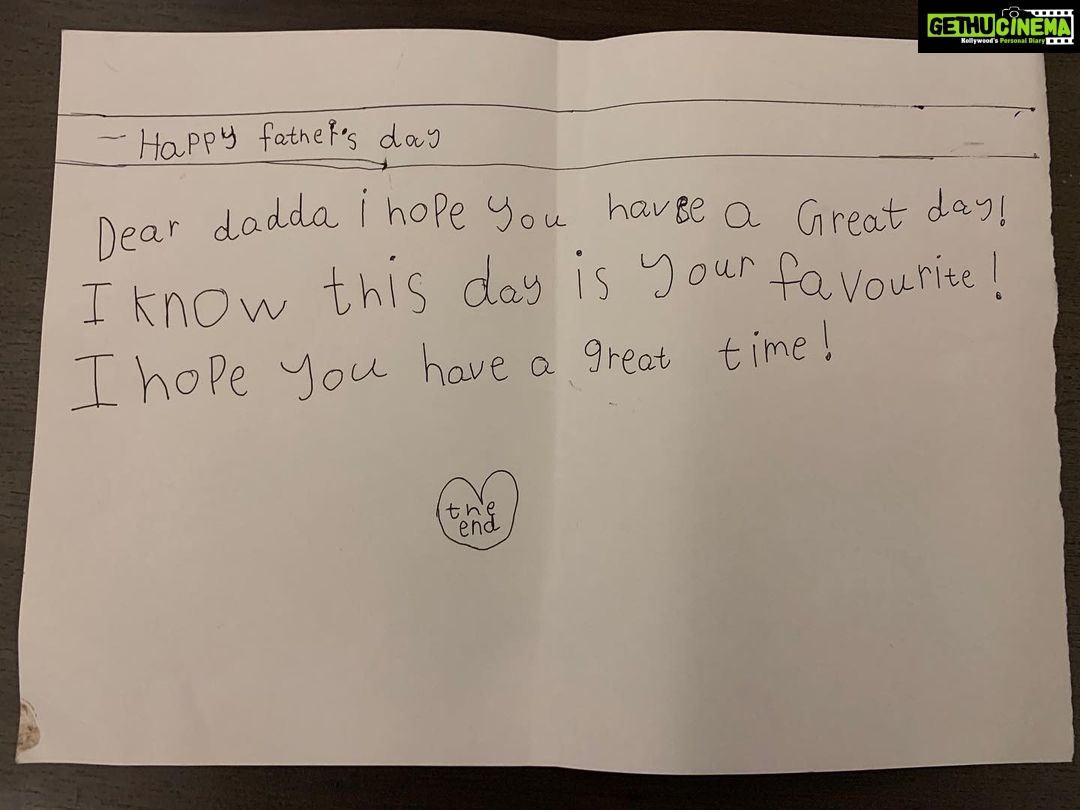 GETHU CINEMA
Kollywood's Personal Diary
- Happy father's day
Dear dadda i hope you have a Great day!
I know this day is your favourite!
I hope you have a great time!
the
end